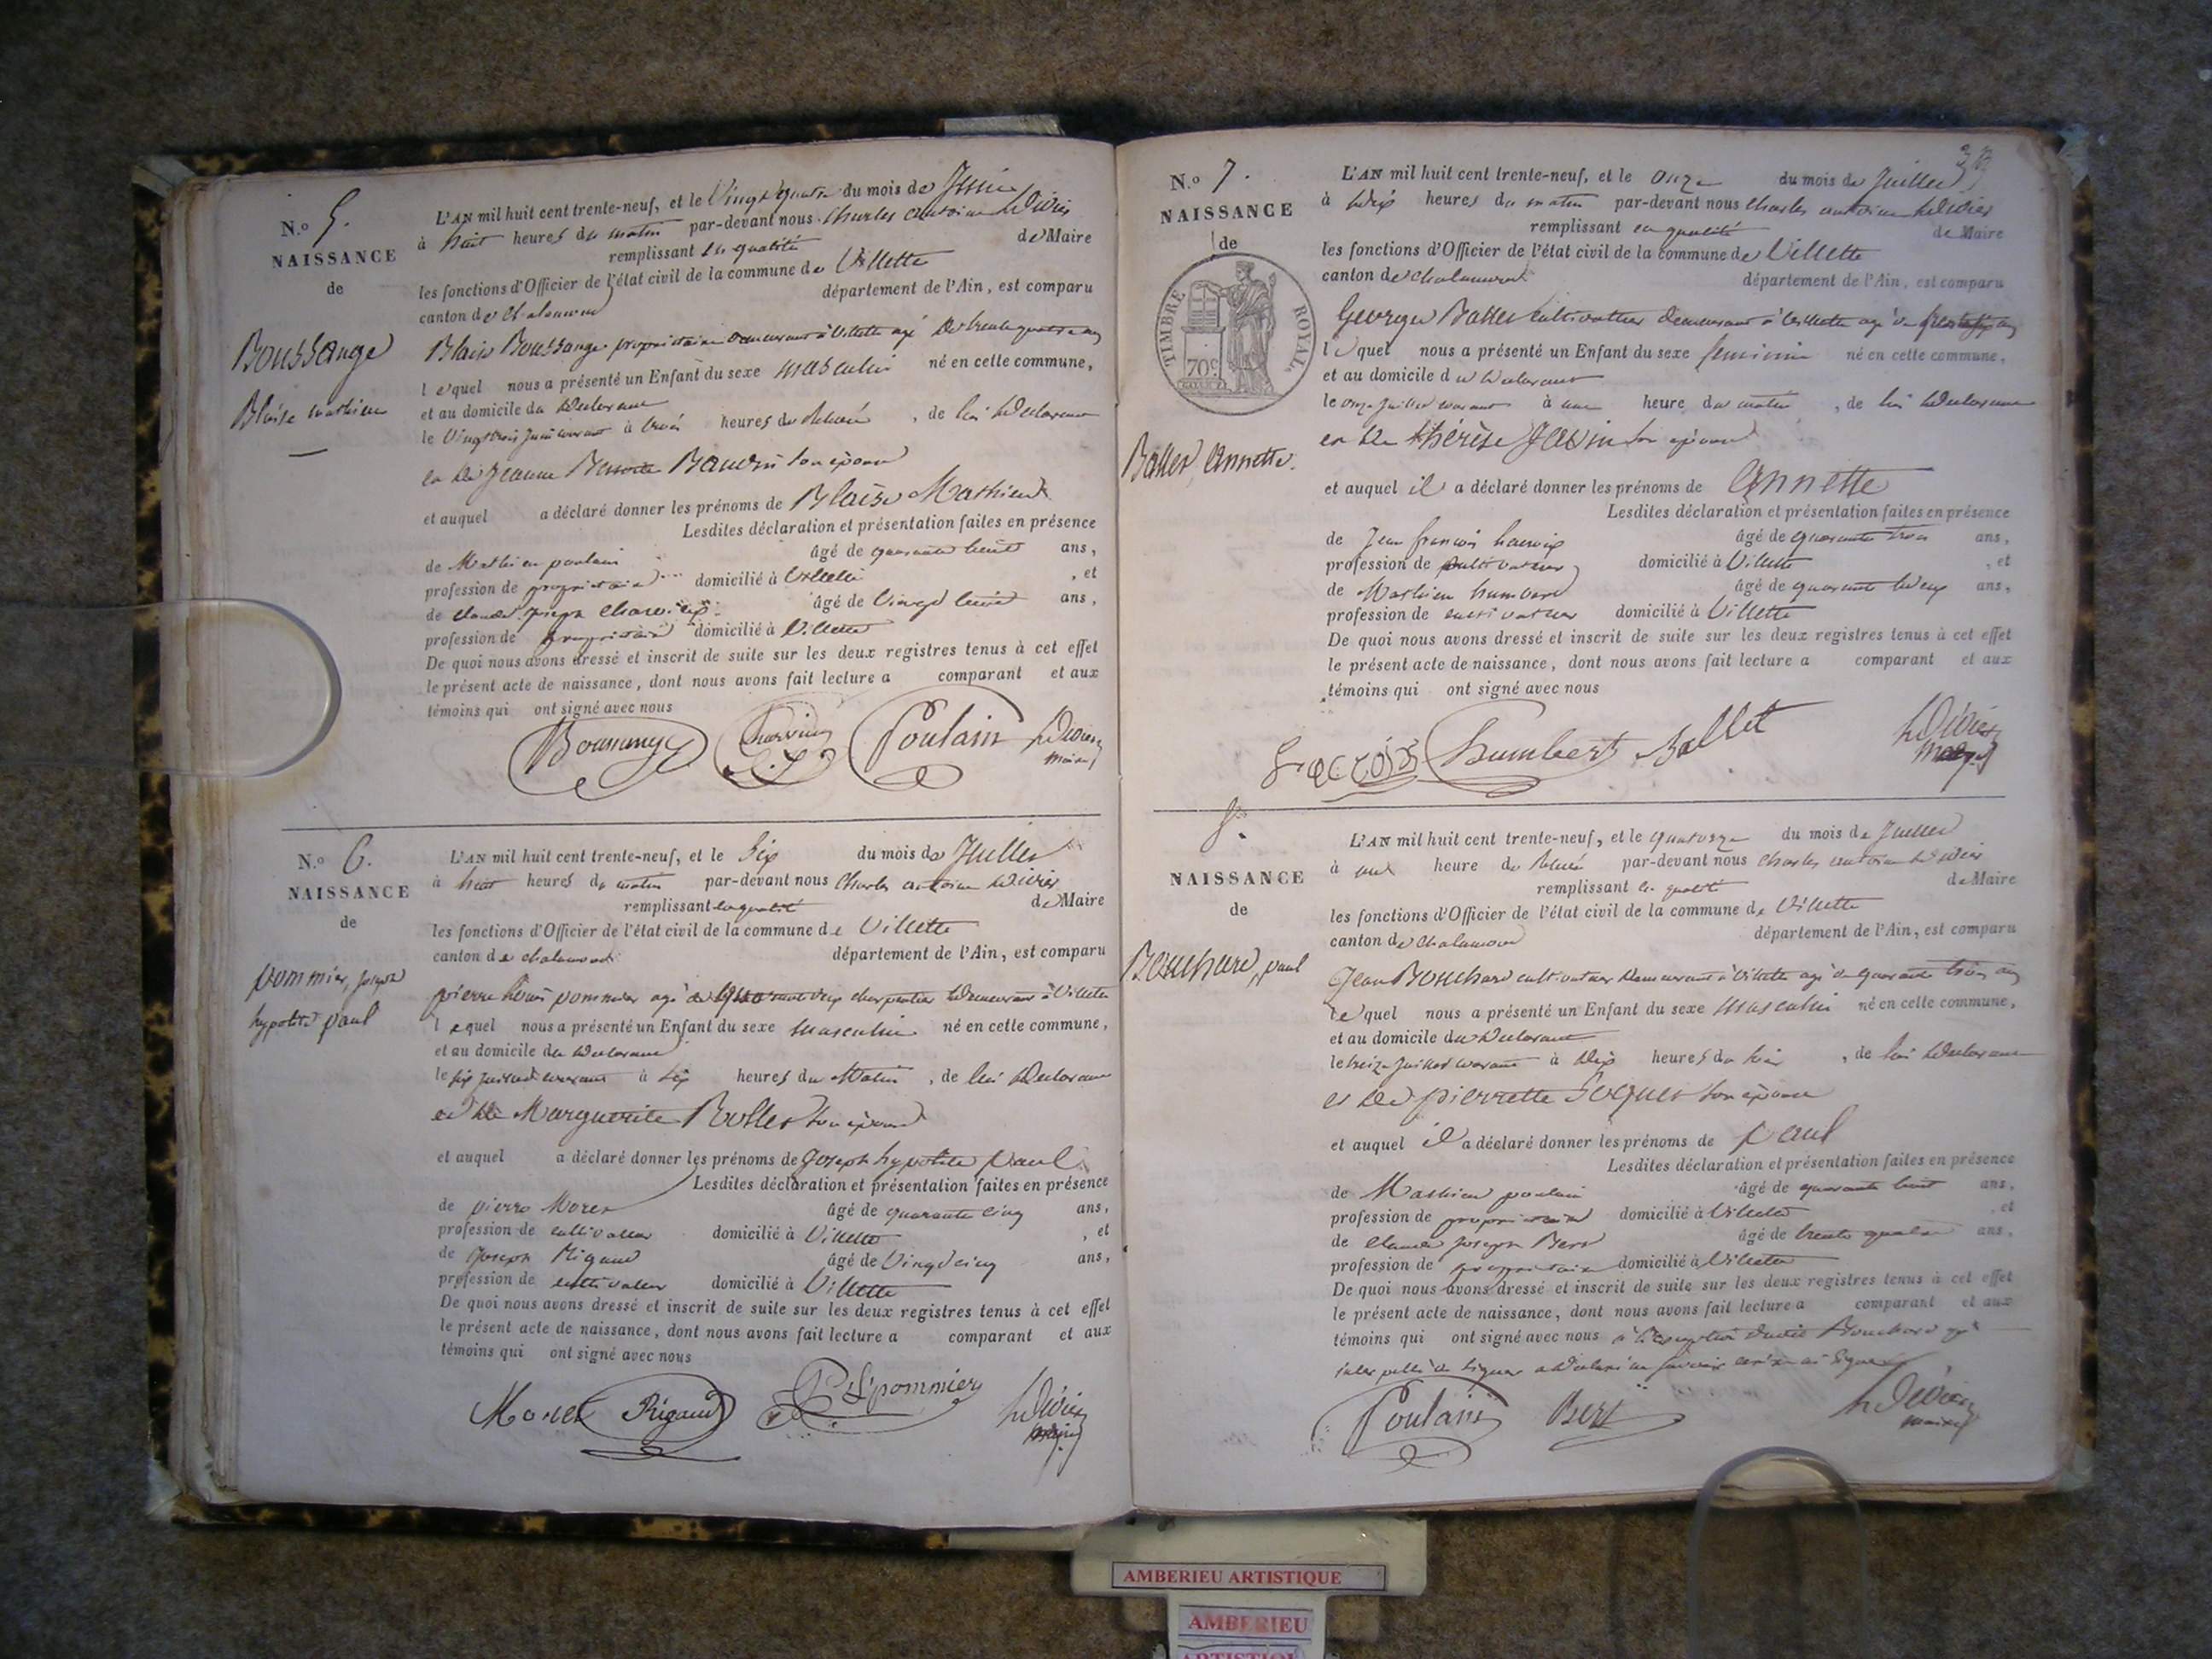 N.o 5.
NAISSANCE
de
Boussange
Blaise mathieu
L'AN mil huit cent trente-neuf, et le Vingt quatre du mois de Juin
à huit heures du matin par-devant nous Charles antoine
remplissant en qualité de Maire
les fonctions d'Officier de l'état civil de la commune de Villette
canton de Chalamont département de l'Ain, est comparu
Blaise Boussange propriétaire demeurant à Villette agé de trente quatre ans
lequel nous a présenté un Enfant du sexe masculin né en cette commune,
et au domicile du déclarant
le Vingt trois juin courant à trois heures du , de lui déclarant
et de Jeanne Baudin son épouse
et auquel a déclaré donner les prénoms de Blaise Mathieu
Lesdites déclaration et présentation faites en présence
de Mathieu poulain âgé de quarante huit ans,
profession de propriétaire domicilié à Villette , et
de claude joseph Charvieux âgé de Vingt huit ans,
profession de propriétaire domicilié à Villette
De quoi nous avons dressé et inscrit de suite sur les deux registres tenus à cet effet
le présent acte de naissance, dont nous avons fait lecture a comparant et aux
témoins qui ont signé avec nous
Boussange Poulain
maire
N.o 6.
NAISSANCE
de
pommier, joseph
hypolite paul
L'AN mil huit cent trente-neuf, et le Six du mois de Juillet
à huit heures du matin par-devant nous Charles antoine
remplissant en qualité de Maire
les fonctions d'Officier de l'état civil de la commune de Villette
canton de chalamont département de l'Ain, est comparu
pierre pommier agé de quarante deux charpentier demeurant à Villette
lequel nous a présenté un Enfant du sexe masculin né en cette commune,
et au domicile du déclarant
le six juillet courant à six heures du Matin , de lui déclarant
et de Marguerite Bollet son épouse
et auquel a déclaré donner les prénoms de Joseph hypolite Paul
Lesdites déclaration et présentation faites en présence
de pierre Morel âgé de quarante cinq ans,
profession de cultivateur domicilié à Villette , et
de Joseph Rigaud âgé de Vingt cinq ans,
profession de cultivateur domicilié à Villette
De quoi nous avons dressé et inscrit de suite sur les deux registres tenus à cet effet
le présent acte de naissance, dont nous avons fait lecture a comparant et aux
témoins qui ont signé avec nous
Morel Rigaud pommier
maire
N.o 7.
NAISSANCE
de
TIMBRE ROYAL
70c
Ballet, annette.
L'AN mil huit cent trente-neuf, et le onze du mois de Juillet
à dix heures du matin par-devant nous Charles antoine
remplissant en qualité de Maire
les fonctions d'Officier de l'état civil de la commune de Villette
canton de chalamont département de l'Ain, est comparu
George Ballet cultivateur demeurant à Villette agé de ans
lequel nous a présenté un Enfant du sexe feminin né en cette commune,
et au domicile du déclarant
le onze juillet courant à une heure du matin , de lui déclarant
et de thérèse Javin son épouse
et auquel il a déclaré donner les prénoms de Annette
Lesdites déclaration et présentation faites en présence
de Jean françois âgé de quarante trois ans,
profession de cultivateur domicilié à Villette , et
de Mathieu humbert âgé de quarante deux ans,
profession de cultivateur domicilié à Villette
De quoi nous avons dressé et inscrit de suite sur les deux registres tenus à cet effet
le présent acte de naissance, dont nous avons fait lecture a comparant et aux
témoins qui ont signé avec nous
humbert Ballet
8.
NAISSANCE
de
Bouchard, paul
L'AN mil huit cent trente-neuf, et le quatorze du mois de Juillet
à une heure du par-devant nous Charles antoine
remplissant en qualité de Maire
les fonctions d'Officier de l'état civil de la commune de Villette
canton de chalamont département de l'Ain, est comparu
Jean Bouchard cultivateur demeurant à Villette agé de quarante trois ans
lequel nous a présenté un Enfant du sexe masculin né en cette commune,
et au domicile du déclarant
le treize juillet courant à dix heures du soir , de lui déclarant
et de pierrette son épouse
et auquel il a déclaré donner les prénoms de paul
Lesdites déclaration et présentation faites en présence
de Mathieu poulain âgé de quarante huit ans,
profession de propriétaire domicilié à Villette , et
de claude joseph Bert âgé de trente quatre ans,
profession de propriétaire domicilié à Villette
De quoi nous avons dressé et inscrit de suite sur les deux registres tenus à cet effet
le présent acte de naissance, dont nous avons fait lecture a comparant et aux
témoins qui ont signé avec nous à l'exception dudit Bouchard
de signer a déclaré ne savoir
Poulain Bert
maire
AMBERIEU ARTISTIQUE
AMBERIEU
ARTISTIQUE